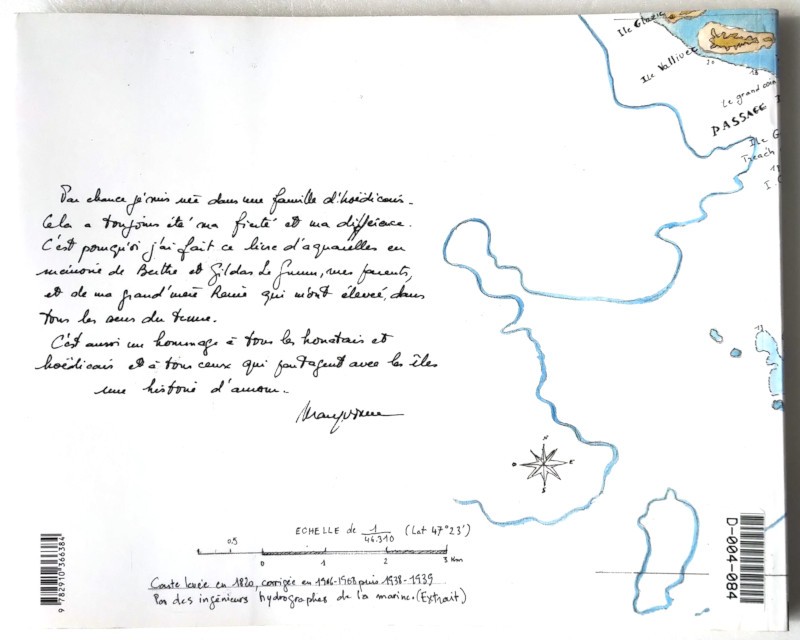 Ile Glazic
Ile Vallivec
Le grand coin
PASSAGE
Ile G
Treach
Par chance je suis née dans une famille d'hoëdicais.
Cela a toujours été ma fierté et ma différence.
C'est pourquoi j'ai fait ce livre d'aquarelles en
mémoire de Berthe et Gildas Le Gurun, mes parents,
et de ma grand'mère Renée qui m'ont élevée, dans
tous les sens du terme.
C'est aussi un hommage à tous les houatais et
hoëdicais et à tous ceux qui partagent avec les îles
une histoire d'amour.
N
O E
S
ECHELLE de 1/44.310 (Lat 47°23')
0,5 0 1 2 3 Km
Carte levée en 1820, corrigée en 1906-1908 puis 1938-1939
Par des ingénieurs hydrographes de la marine. (Extrait)
9 782910 366384
D-004-084